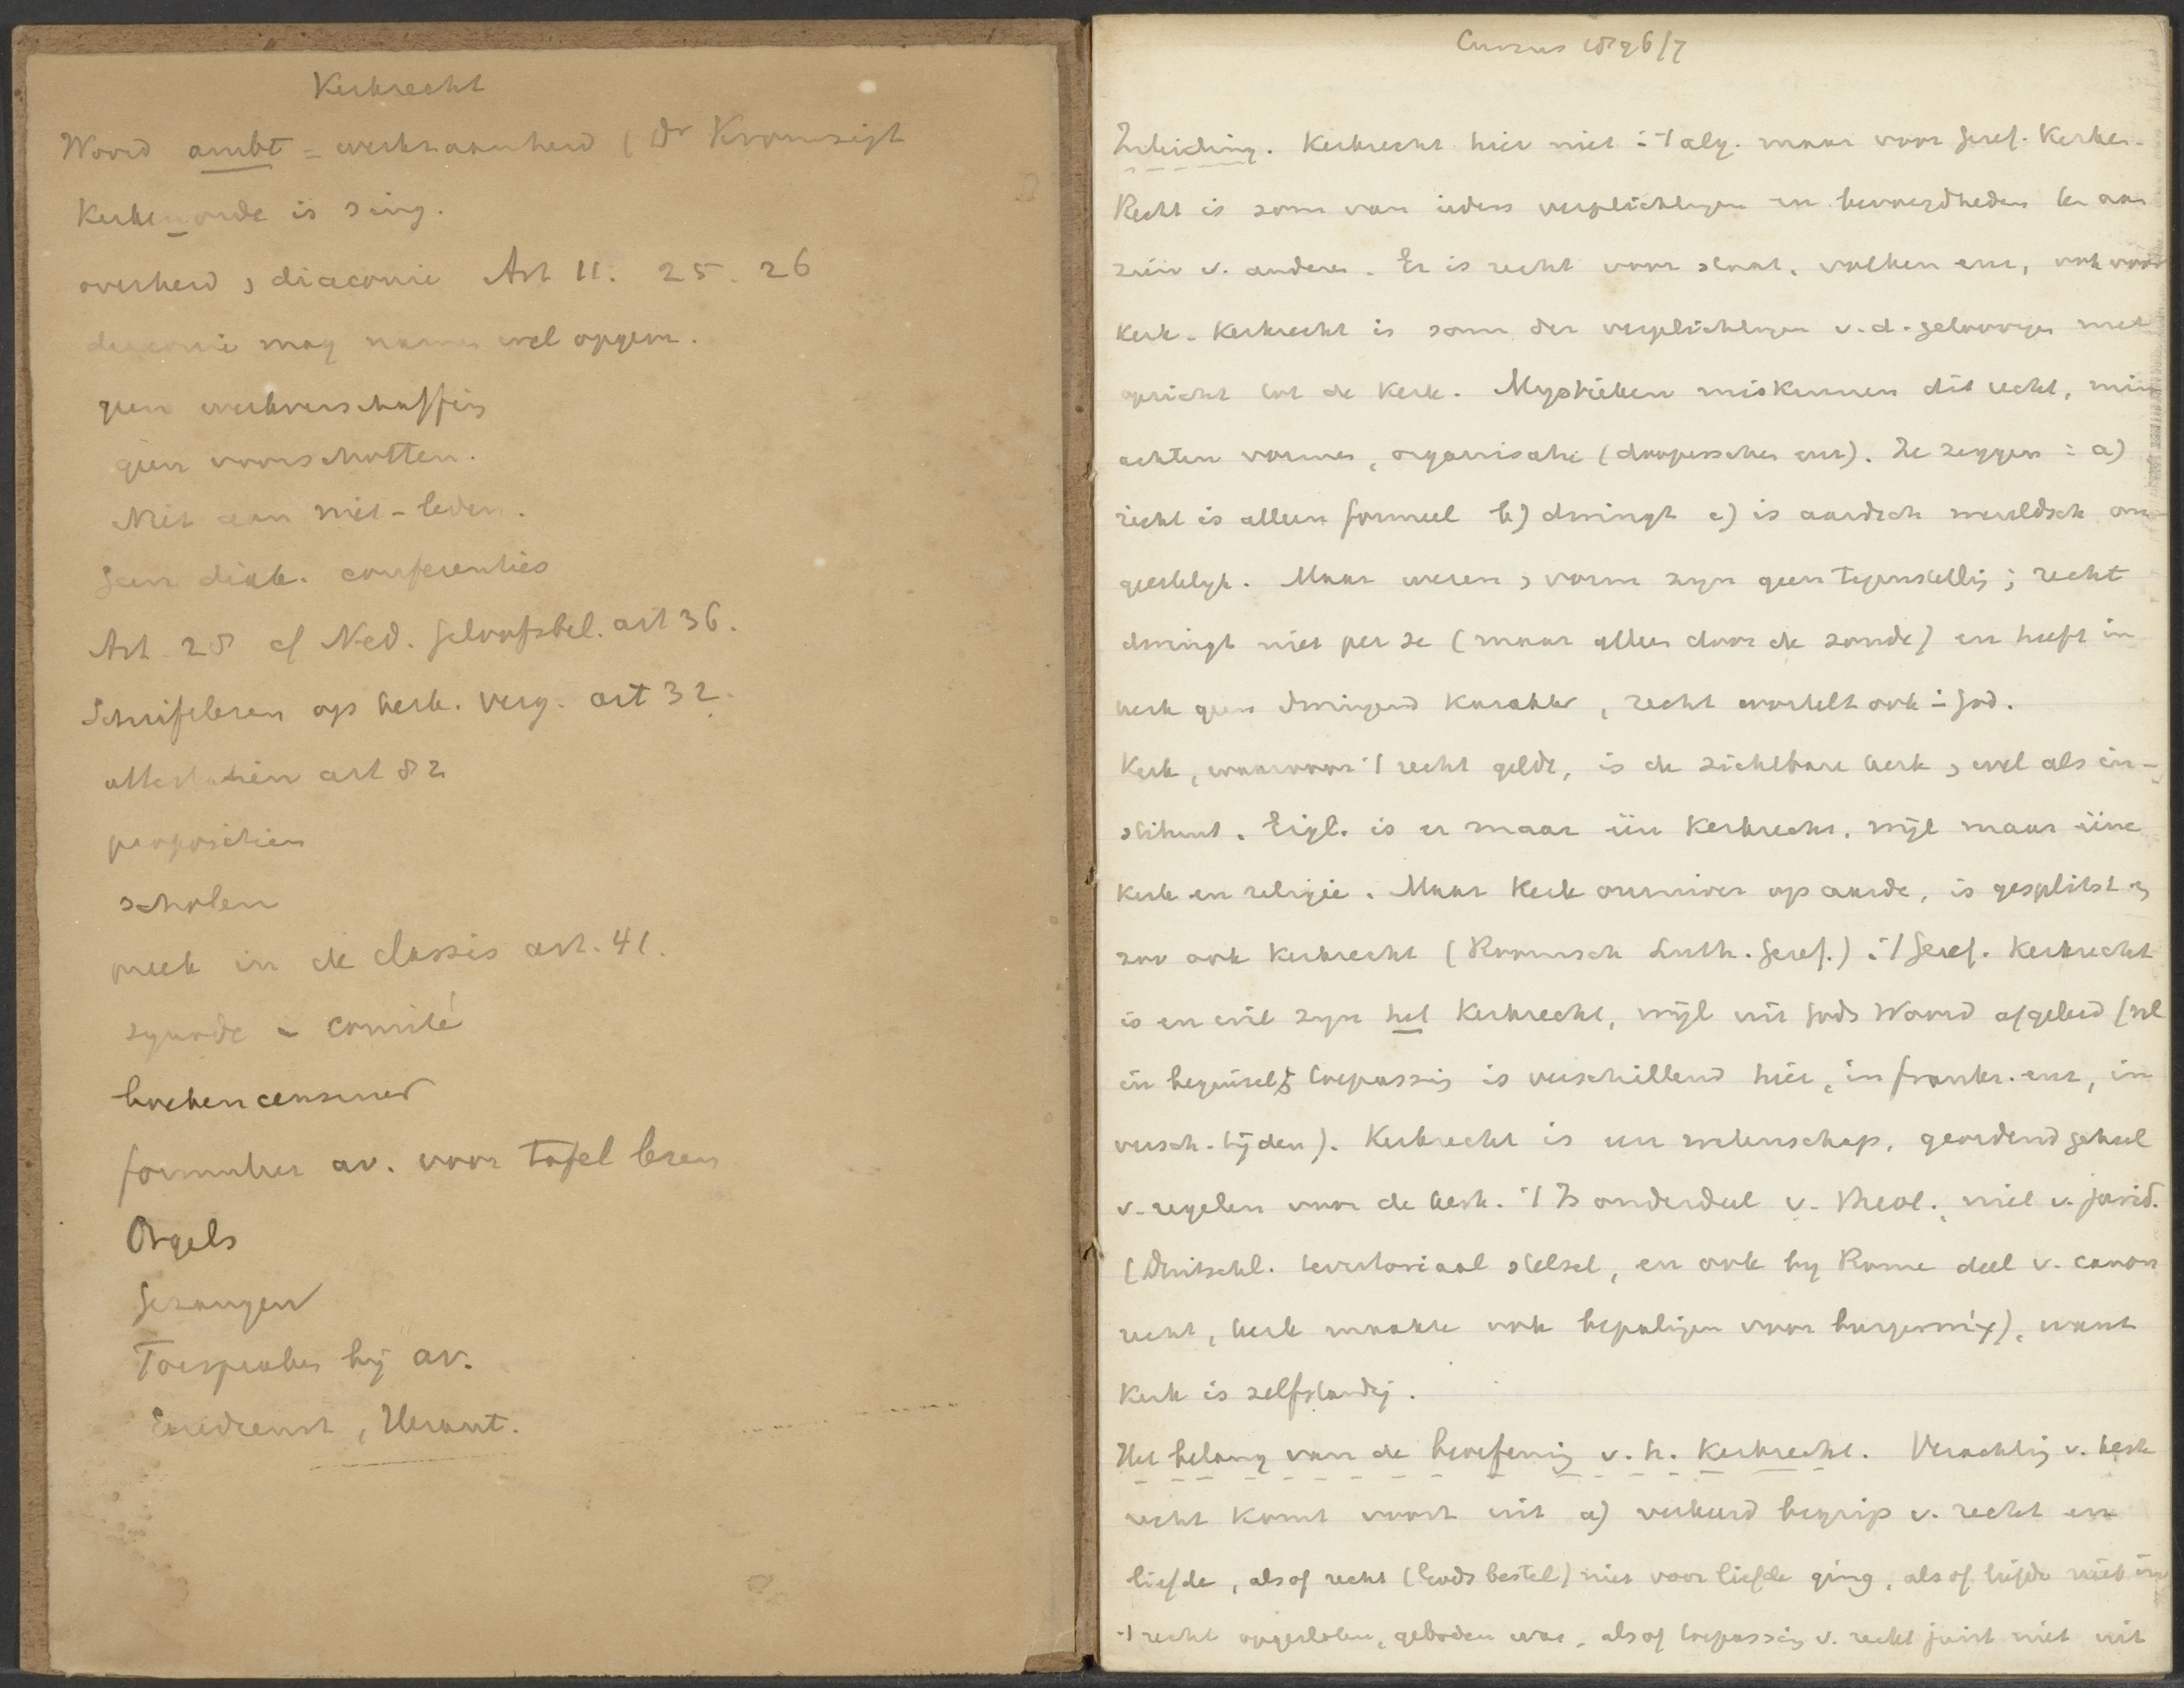 Kerkrecht
Woord ambt = werkzaamheid (Dr Kromsigt
Kerkenorde is sing.
overheid, diaconie Art 11. 25. 26
diaconie mag namen wel opgem.
geen werkverschaffing
geen voorschotten.
Niet aan niet-leden.
Geen diak. conferenties
Art 28 cf Ned. Geloofsbel. art 36.
Schriftlezen op kerk. verg. art 32.
attestatien art 82
proposities
scholen
preek in de classis art. 41.
synode - comité
boekencensuur
formulier av. voor tafel lezen
Orgels
Gezangen
Toespraken bij av.
Eeredienst,
Cursus 1896/7
Inleiding. Kerkrecht hier niet in 't alg. maar voor Geref. Kerken.
Recht is som van ieders verplichtingen en bevoegdheden ten aan
zien v. anderen. Er is recht voor staat, volken enz, ook voor
Kerk. Kerkrecht is som der verplichtingen v. d. geloovigen met
opzicht tot de Kerk. Mystieken miskennen dit recht, min
achten vormen, organisatie (doopersche enz). Ze zeggen: a)
recht is alleen formeel b) dwingt c) is aardsch wereldsch on
geestelyk. Maar wezen, vorm zyn geen tegenstellig; recht
dwingt niet per se (maar alleen door de zonde) en heeft in
kerk geen dwingend karakter, recht wortelt ook in God.
Kerk, waarvoor 't recht geldt, is de zichtbare kerk, wel als in-
stituut. Eigl. is er maar één Kerkrecht, wijl maar ééne
Kerk en religie. Maar Kerk op aarde, is gesplitst en
zoo ook Kerkrecht (Roomsch Luth. Geref.) 't Geref. Kerkrecht
is en wil zyn het Kerkrecht, wijl uit Gods Woord afgeleid (wel
in beginsel; toepassing is verschillend hier, in Frankr. enz, in
versch. tijden). Kerkrecht is een wetenschap, geordend geheel
v. regelen voor de kerk. 't Is onderdeel v. Theol., niet v. jurid.
(Duitschl. territoriaal stelsel, en ook by Rome deel v. canon
recht, kerk maakte ook bepalingen voor burger), want
Kerk is zelfstandig.
Het belang van de beoefening v. h. Kerkrecht. Verachting v. kerk
recht komt voort uit a) verkeerd begrip v. recht en
liefde, alsof recht (Gods bestel) niet voor liefde ging, alsof liefde niet in
't recht opgesloten, geboden was, alsof toepassing v. recht juist niet uit